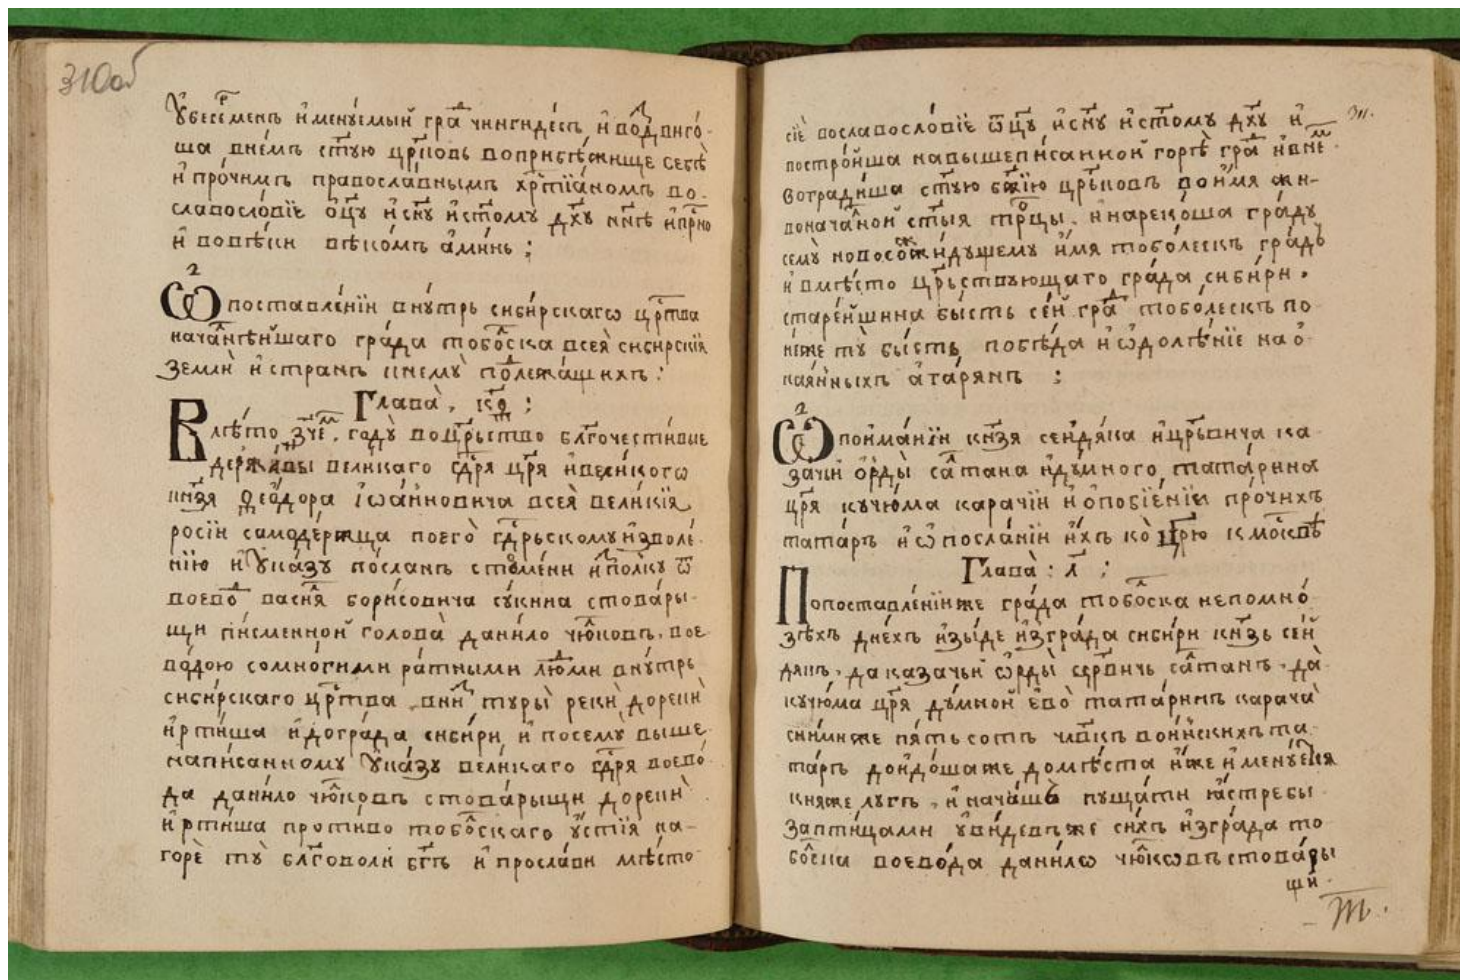 310об
Ꙋбесерменъ именꙋемый граⷣ чингидесъ, и воⷣвиго-
ша внемъ стꙋю црⷦ҇овь воприбѣжище себѣ
и прочимъ православнымъ хрⷭ҇тїаномъ во-
славословїе оц҃ꙋ и сн҃ꙋ и ст҃омꙋ дх҃ꙋ нн҃ѣ и прⷭ҇но
и вовѣки вѣкомъ аминь :
Ѡ поставленїи внꙋтрь сибирскагѡ црⷭ҇тва
начаⷧнѣйшаго града тобоⷧска всея сибирскїя
земли и странъ кнемꙋ поⷣлежащихъ :
Глава , к҃ѳ :
Влѣто зч҃е , годꙋ воцр҃ьство благочестивые
державы великаго гдⷭ҇ря цр҃я и великогѡ
кн҃зя Ѳеодора Іѡанновича всея великїя
росїи самодержца поего гдⷭ҇рьскомꙋ изволе-
нїю и Ꙋказꙋ посланъ стюмени и поⷧкꙋ ѿ
воевоⷣ васиⷧя борисовича сꙋкина стовары-
щи писменной голова данило чюⷧковъ , вое
водою сомногими ратными люⷣми внꙋтрь
сибирскаго црⷭ҇тва вниⷥ тꙋры реки дореки
иртиша и дограда сибири , и посемꙋ выше
написанномꙋ Ꙋказꙋ великаго гдⷭ҇ря воево-
да данило чюⷧковъ стоварыщи дореки
иртиша противо тобоⷧскаго ꙋстїя на-
горе тꙋ благоволи бг҃ъ и прослави мѣсто
сїе вославословїе ѿц҃ꙋ и сн҃ꙋ и ст҃омꙋ дх҃ꙋ и
построиша навышеписанной горѣ граⷣ и внеⷨ
вотрадиша ст҃ꙋю бж҃їю црⷦ҇овь воимя жи-
воначаⷧной ст҃ыя трⷪ҇цы , и нарекоша градꙋ
семꙋ новосоⷥжидꙋщемꙋ имя тоболескъ градъ
и вмѣсто цр҃ьствꙋющаго града сибири .
старейшина бысть сей граⷣ тоболескъ по
неже тꙋ бысть побѣда и ѡдолѣнїе на о-
каянныхъ агарянъ :
Ѡ поиманїи кн҃зя сейдяка и цр҃ьвича ка
зачьи орды саⷧтана и дꙋмного татарина
цр҃я кꙋчюма карачїи и опобїенїи прочихъ
татаръ и ѡпосланїи ихъ ко цр҃ю кмоскⷭ҇вѣ
Глава : л҃ :
Попоставленїиже града тобоⷧска непомно-
зѣхъ днехъ изыде изграда сибири кн҃зь сей
дякъ , да казачьи ѡрды цр҃вичь саⷧтанъ , да
кꙋчюма цр҃я дꙋмной ево татаринъ карача
снимиже пять сотъ члв҃къ воинскихъ та
таръ доидошаже доместа иже именꙋеⷮся
княже лꙋгъ , и начаша пꙋщати ястребы
заптицами ꙋвидевъже сихъ изграда то
боⷧска воевода данилѡ чюⷧкѡвъ стовары
щи .